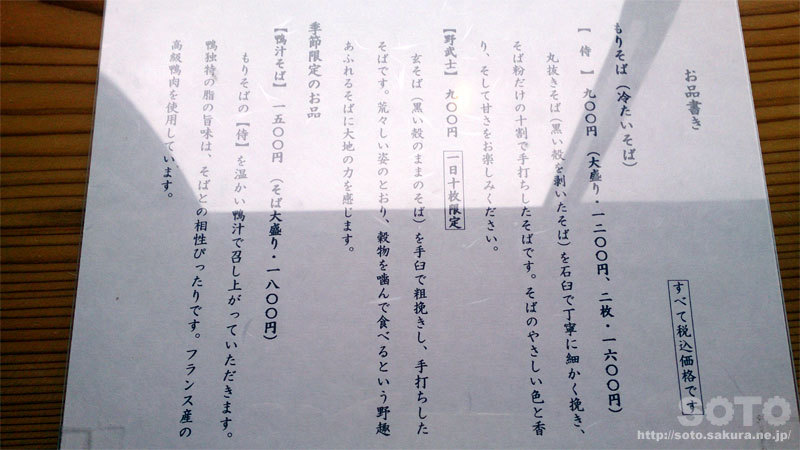 お品書き
すべて税込価格です
もりそば（冷たいそば）
【 侍 】 九〇〇円 （大盛り・一二〇〇円、二枚・一六〇〇円）
丸抜きそば（黒い殻を剥いたそば）を石臼で丁寧に細かく挽き、
そば粉だけの十割で手打ちしたそばです。そばのやさしい色と香
り、そして甘さをお楽しみください。
【野武士】 九〇〇円 一日十枚限定
玄そば（黒い殻のままのそば）を手臼で粗挽きし、手打ちした
そばです。荒々しい姿のとおり、穀物を噛んで食べるという野趣
あふれるそばに大地の力を感じます。
季節限定のお品
【鴨汁そば】 一五〇〇円 （そば大盛り・一八〇〇円）
もりそばの【侍】を温かい鴨汁で召し上がっていただきます。
鴨独特の脂の旨味は、そばとの相性ぴったりです。フランス産の
高級鴨肉を使用しています。
SOTO
http://soto.sakura.ne.jp/